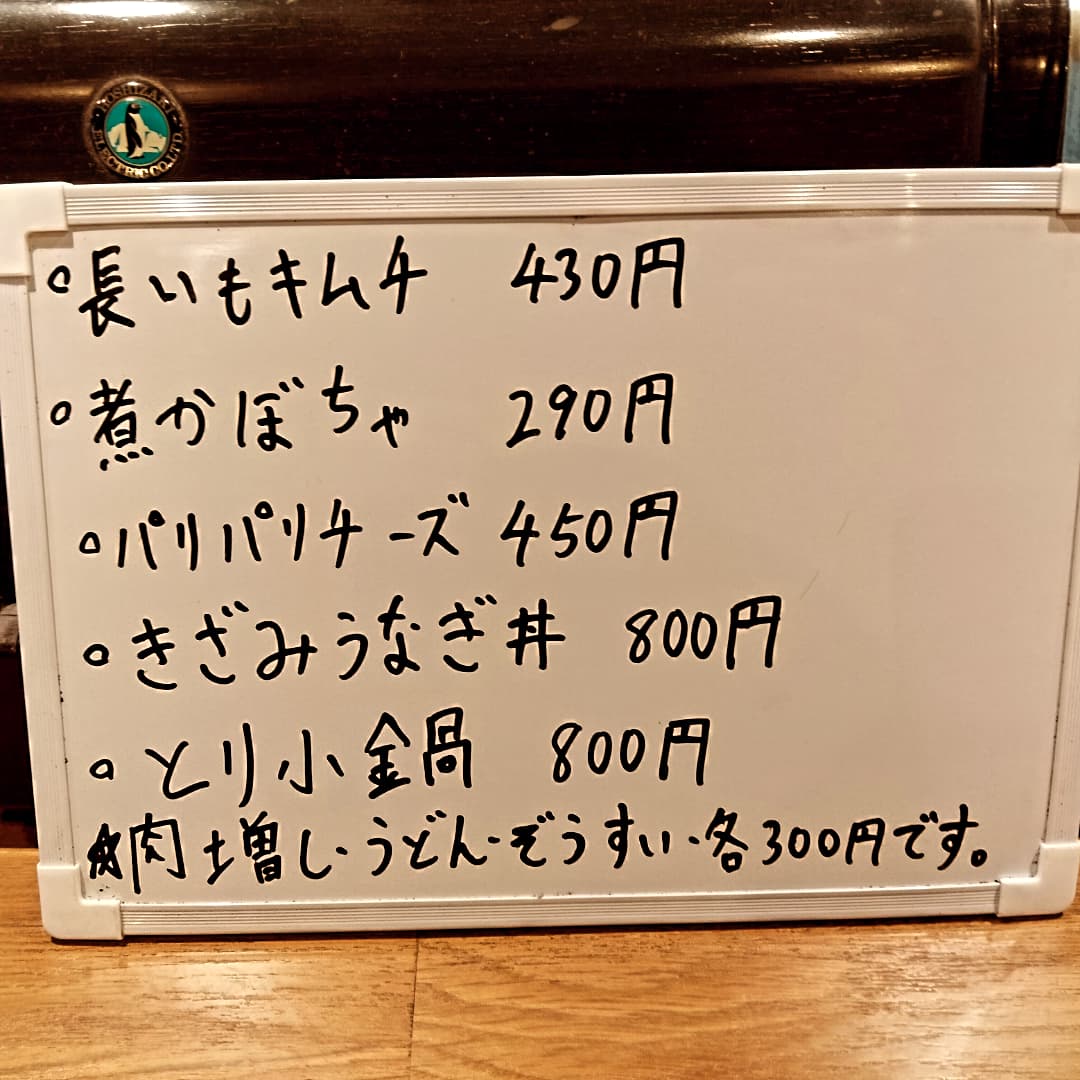 YOSHIZAKI ELECTRIC CO.LTD.
○長いもキムチ 430円
○煮かぼちゃ 290円
○パリパリチーズ 450円
○きざみうなぎ丼 800円
○とり小鍋 800円
肉増し・うどん・ぞうすい・各300円です。